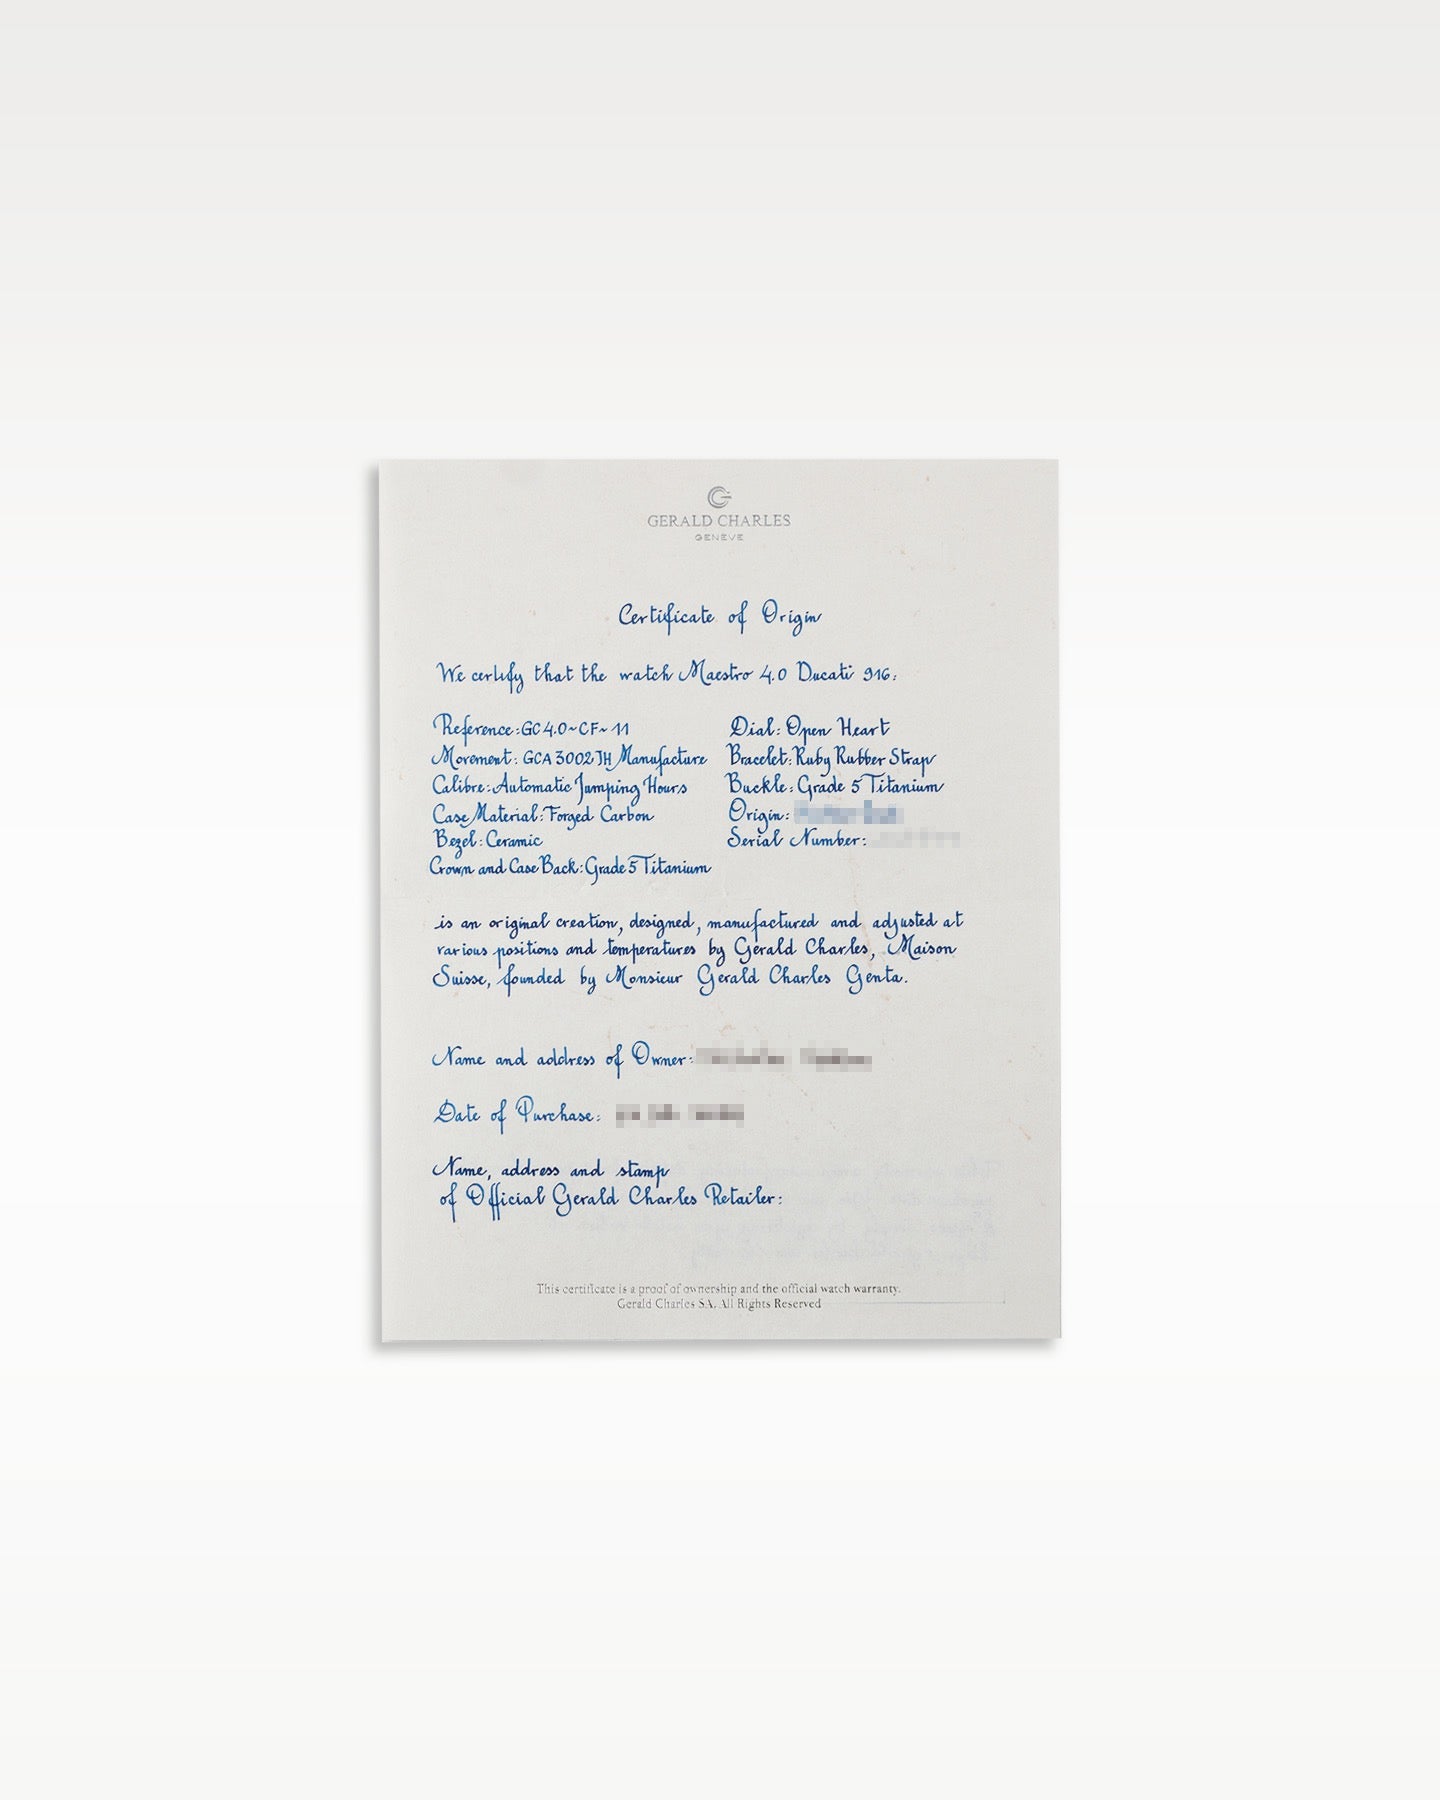 GERALD CHARLES
GENÈVE
Certificate of Origin
We certify that the watch Maestro 4.0 Ducati 916:
Reference: GC4.0~CF~11
Movement: GCA3002JH Manufacture
Calibre: Automatic Jumping Hours
Case Material: Forged Carbon
Bezel: Ceramic
Crown and Case Back: Grade 5 Titanium
Dial: Open Heart
Bracelet: Ruby Rubber Strap
Buckle: Grade 5 Titanium
Origin:
Serial Number:
is an original creation, designed, manufactured and adjusted at
various positions and temperatures by Gerald Charles, Maison
Suisse, founded by Monsieur Gerald Charles Genta.
Name and address of Owner:
Date of Purchase:
Name, address and stamp
of Official Gerald Charles Retailer:
This certificate is a proof of ownership and the official watch warranty.
Gerald Charles SA. All Rights Reserved